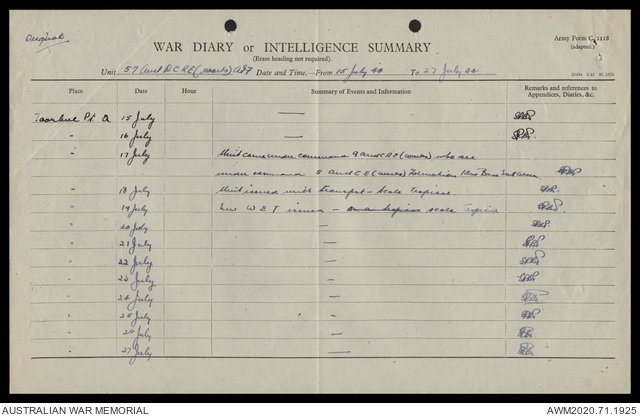 Original
Army Form C. 2118
(adapted.)
WAR DIARY or INTELLIGENCE SUMMARY
(Erase heading not required).
Unit 57 Aust D C R E (Works) AIF Date and Time.—From 15 July 44 To 27 July 44
Place Date Hour Summary of Events and Information Remarks and references to
Appendices, Diaries, &c.
Pt Q 15 July —
" 16 July —
" 17 July Unit came under command 9 Aust C R E (works) who are
under command 5 Aust C E (works) Formation Base Sub area
" 18 July Unit issued with transport – scale tropical.
" 19 July W E T issued – scale Tropical
" 20 July —
" 21 July —
" 22 July —
" 23 July —
" 24 July —
" 25 July —
" 26 July —
" 27 July —
AUSTRALIAN WAR MEMORIAL AWM2020.71.1925